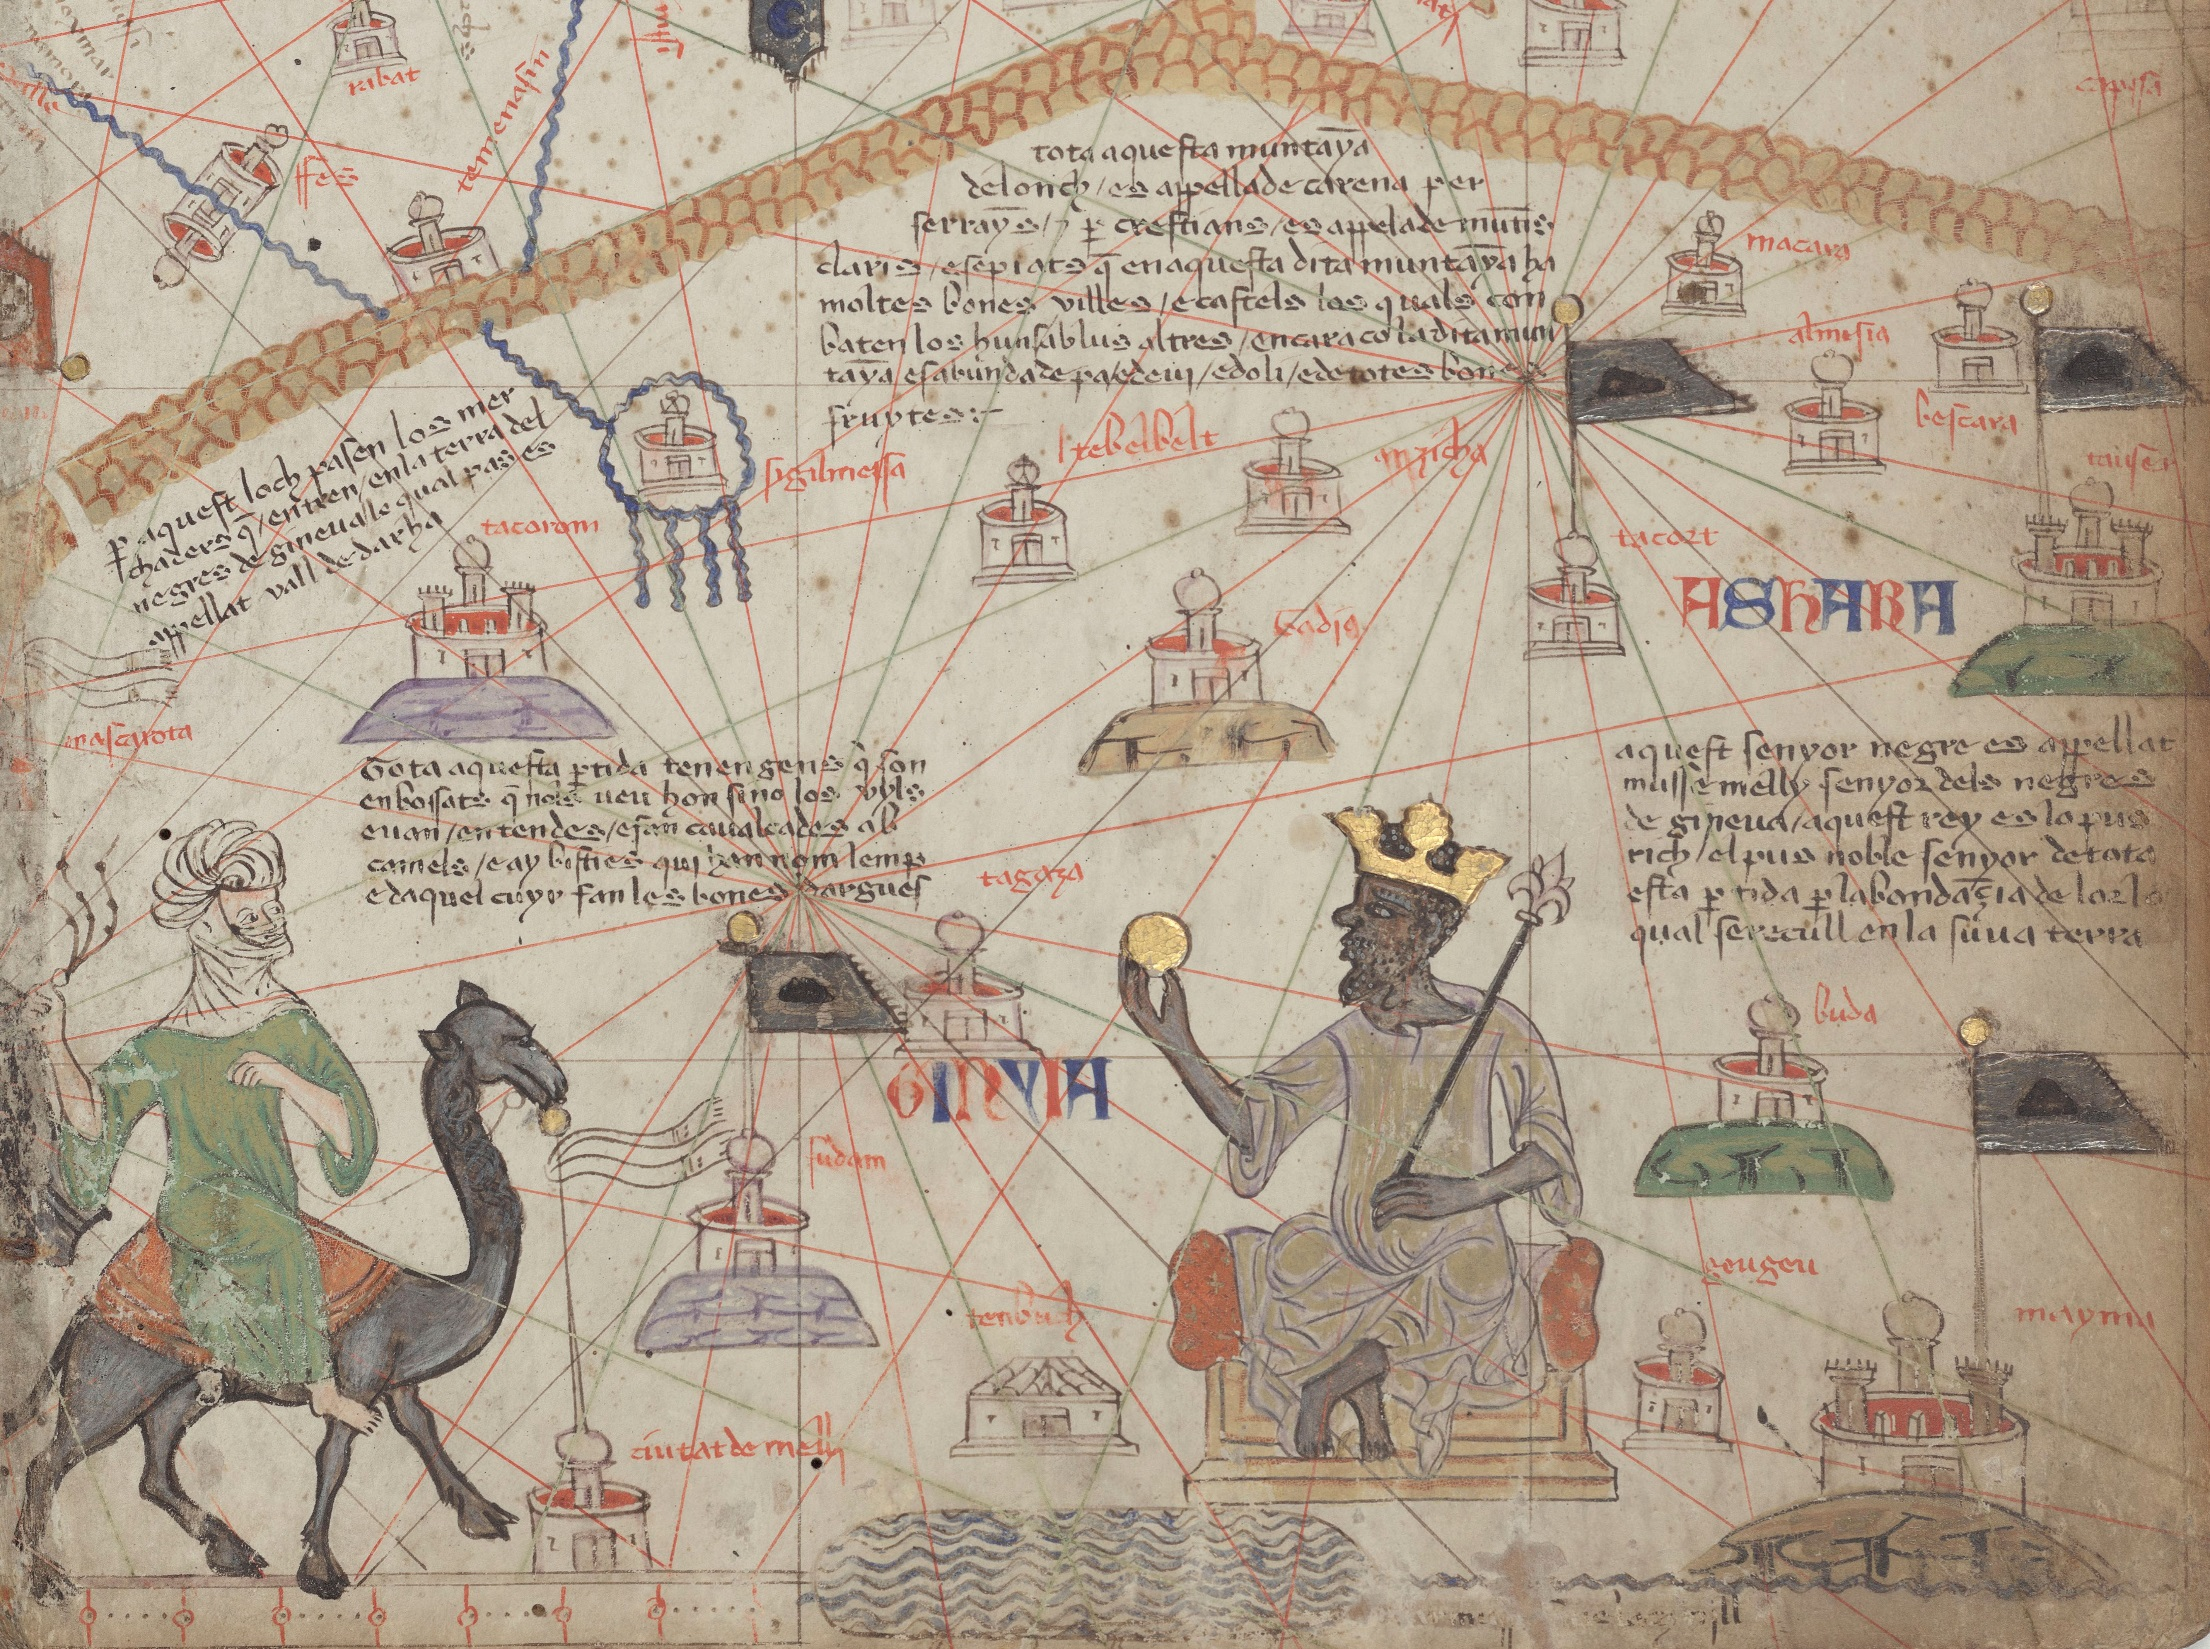 ribat
ffes
temenasin
capsa
tota aquesta muntaỹa
de lonch / es appellade carena per
serrayñs / ⁊ ꝑ crestians / es appelade munts
claris / e sepiats q̃ en aquesta dita muntaỹa ha
moltes bones villes / e castels los quals con
baten los huns ab lus altres / encara co la dita mun
taỹa es abundade pa / e de vin / e doli / e de totes bones
fruytes :-
macara
almisia
bescara
ꝑ aquest loch pasen los mer
chaders q̃ / entren / en la terra del
negres de gineua / le qual pas es
appellat vall de darha
sigilmessa
tebelbelt
anzicha
tacort
tacorom
ASHARA
tagaza
Tota aquesta ꝑtida tenen gens q̃ son
enbossats q̃ nols veu hon sino los uyls
e van / en tendes / e fan caualcades ab
camels / e ay bisties qui han nom lemp
e daquel cuyr fan les bones dargues
aquest senyor negre es appellat
musse melly senyor dels negres
de gineua / aquest rey es lo pus
rich / el pus noble senyor de tota
esta ꝑtida ꝑ labondaçia de lor lo
qual se recull en la suua terra
buda
GINYIA
sudam
tenbuch
geugeu
mayma
ciutat de melly